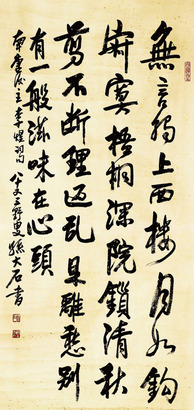 無言獨上西樓月如鈎
寂寞梧桐深院鎖清秋
剪不斷理還亂是離愁別
有一般滋味在心頭
南唐後主李煜詞句
孫大石書